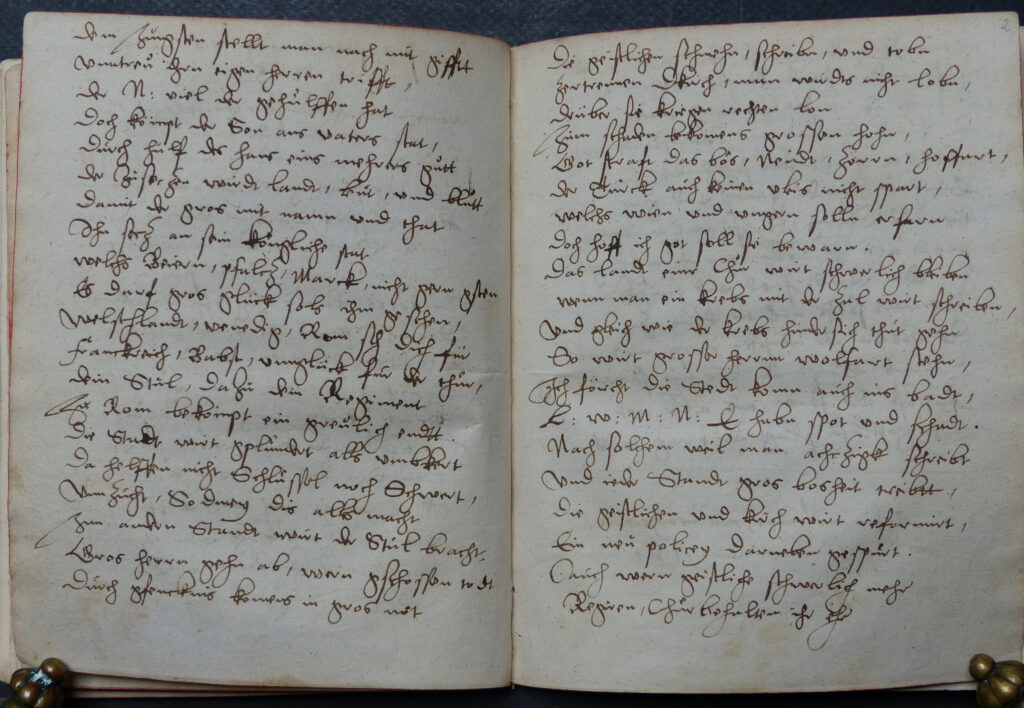 dem Jungsten stellt man nach mit gifft
Vnntreu den eigen herren trifft,
der N: viel der gehulffen hat
doch kömpt der Son ans vaters stat,
durch hulf des haus eins mehrers gutt
der zwirdt landt, leut, und blutt
damit der gros mit namn und that
Jhn setz an sein königliche stat
welchs Beiern, pfaltz, Marck, nicht gern
Es darf gros gluck sols ihm geschen,
Welschlandt, venedig, Rom sich dich für
Franckreich, Babst, vnngluck für der thür,
dein Stul, dazu dein Regiment
Zu Rom bekömpt ein greulich endt.
die Stadt wirt geplundert alls vmbkert
da helffen nicht Schlüssel noch Schwert,
Vnnzucht, Sodmey dis alls macht
Zum andern Standt wirt der Stul bracht.
Gros herrn gehn ab, wern gschossen todt
durch gfencknis komens in gros not
2
Die geistlichen schmehn, schreibn, und tobn
zertrennen Kirch, man wirdts nicht lobn,
drüber sie kriegen rechten lon
Zum schaden bekomens grossen hohn,
Got straft das bös, Neidt, Zorn, hoffart,
der Türck auch keinen vleis nicht spart,
welchs wien und vngern solln erfarn
doch hoff ich got soll sie bewarn.
das landt einr Chur wirt schwerlich bleiben
wenn man ein krebs mit der Zal wirt schreiben,
Und gleich wie der krebs hinder sich thut gehn
So wirt grosser herrnn wolfart stehn,
Ich förcht die Stedt komn auch ins badt,
L: W: M: N: E habn spot und schadt.
Nach solchem weil man achtzigk schreibt
Und ieder Standt gros bosheit treibt,
die geistlichen und kirch wirt reformirt,
Ein neu policey darneben gespürt.
Auch wern geistliche schwerlich mehr
Regiren, Chur behalten ihr ehr